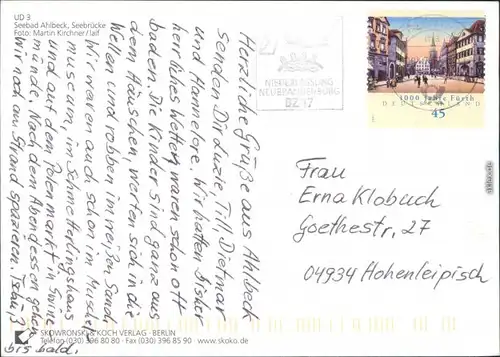 UD 3
Seebad Ahlbeck, Seebrücke
Foto: Martin Kirchner/laif
Herzliche Grüße aus Ahlbeck
senden Dir Luzie, Till, Dietmar
und Hannelore. Wir hatten bisher
herrliches Wetter, waren schon oft
baden. Die Kinder sind ganz aus
dem Häuschen, werfen sich in die
Wellen und robben im weißen Sand.
Wir waren auch schon im Muschel
museum, im Schmetterlingshaus
und auf dem Polenmarkt in Swine
münde. Nach dem Abendessen gehen
wir noch am Strand spazieren. Tschüß
bis bald.
SKOWRONSKI & KOCH VERLAG · BERLIN
Telefon (030) 396 80 80 · Fax (030) 396 85 90
www.skoko.de
NEUBRANDENBURG
1000 Jahre Fürth
DEUTSCHLAND
45
Frau
Erna Klobuch
Goethestr. 27
04934 Hohenleipisch